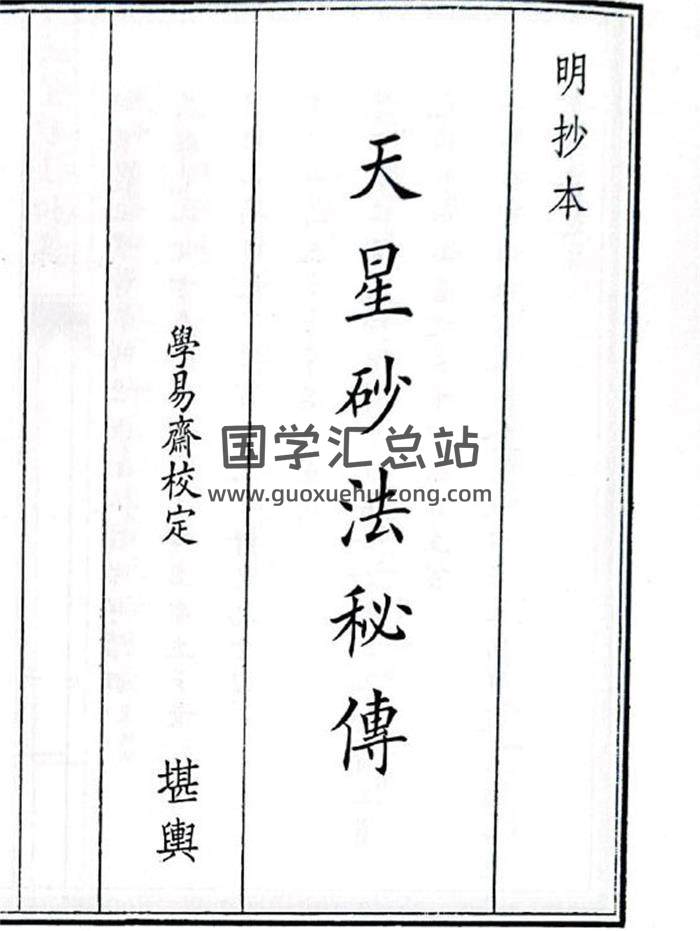 明抄本
天星砂法秘傳
學易齋校定
堪輿
国学汇总站
www.guoxuehuzong.com